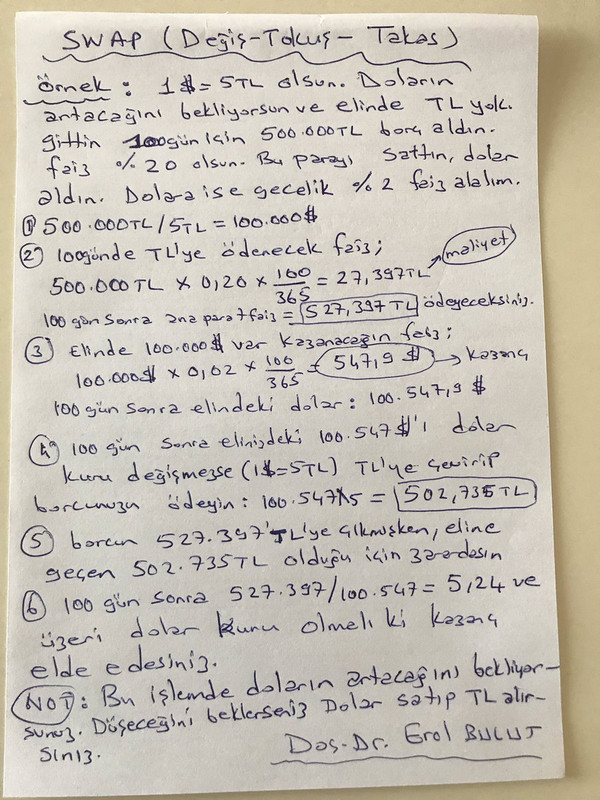 SWAP (Değiş-Tokuş-Takas)
Örnek: 1$=5TL olsun. Doların
artacağını bekliyorsun ve elinde TL yok.
gittin 100gün için 500.000TL borç aldın.
faiz %20 olsun. Bu parayı sattın, dolar
aldın. Dolara ise gecelik %2 faiz alalım.
① 500.000TL/5TL=100.000$
② 100günde TL'ye ödenecek faiz;
500.000TL x 0,20 x 100/365 = 27,397TL → maliyet
100 gün sonra ana para+faiz = 527,397 TL ödeyeceksiniz.
③ Elinde 100.000$ var kazanacağın faiz;
100.000$ x 0,02 x 100/365 = 547,9 $ → kazanç
100 gün sonra elindeki dolar: 100.547,9 $
④ 100 gün sonra elinizdeki 100.547$'ı dolar
kuru değişmezse (1$=5TL) TL'ye çevirip
borcunuzu ödeyin: 100.547x5 = 502,735TL
⑤ borcun 527.397'TL'ye çıkmışken, eline
geçen 502.735TL olduğu için zarardasın
⑥ 100 gün sonra 527.397/100.547= 5,24 ve
üzeri dolar kuru olmalı ki kazanç
elde edesiniz.
NOT: Bu işlemde doların artacağını bekliyor-
sunuz. Düşeceğini beklerseniz Dolar satıp TL alır-
sınız.
Doç.Dr. Erol BULUT